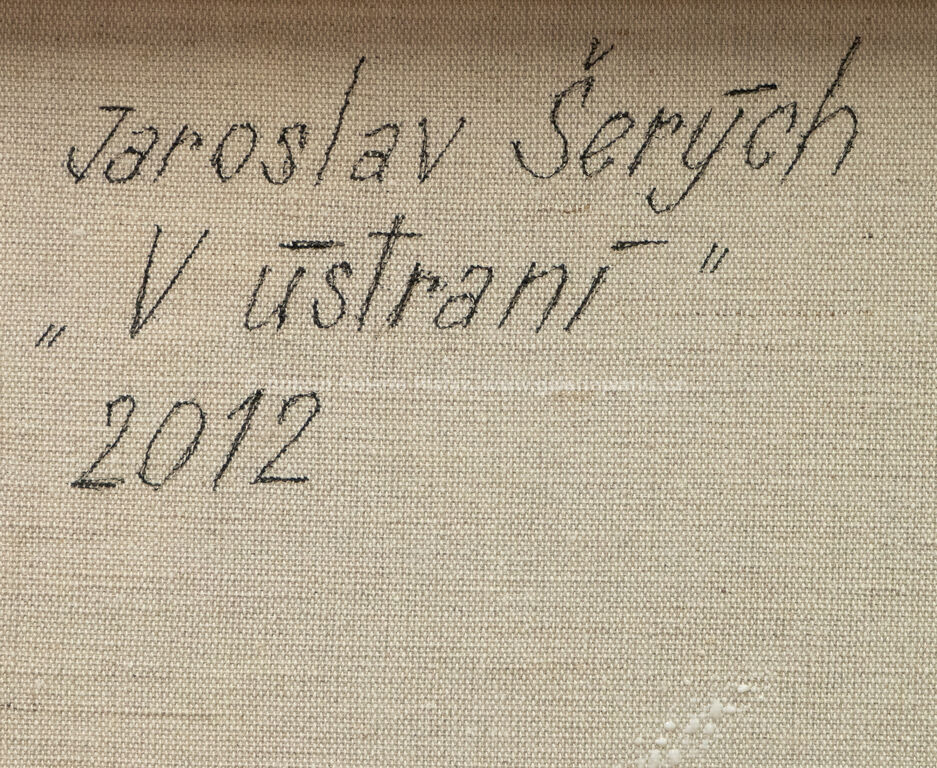 Jaroslav Šerých
„V ústraní"
2012